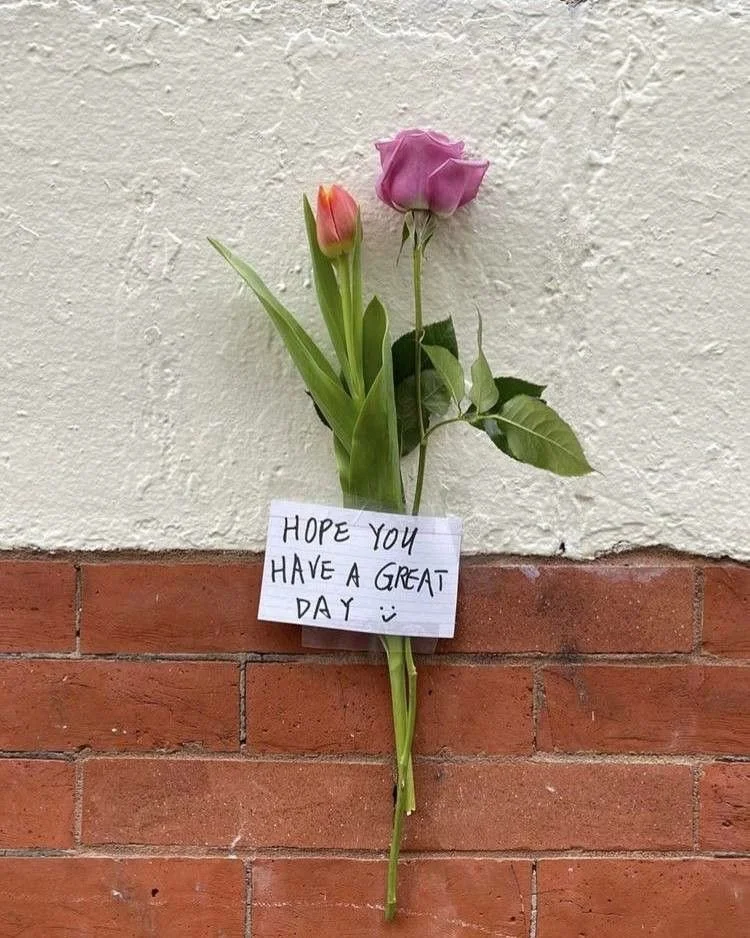 HOPE YOU
HAVE A GREAT
DAY :)